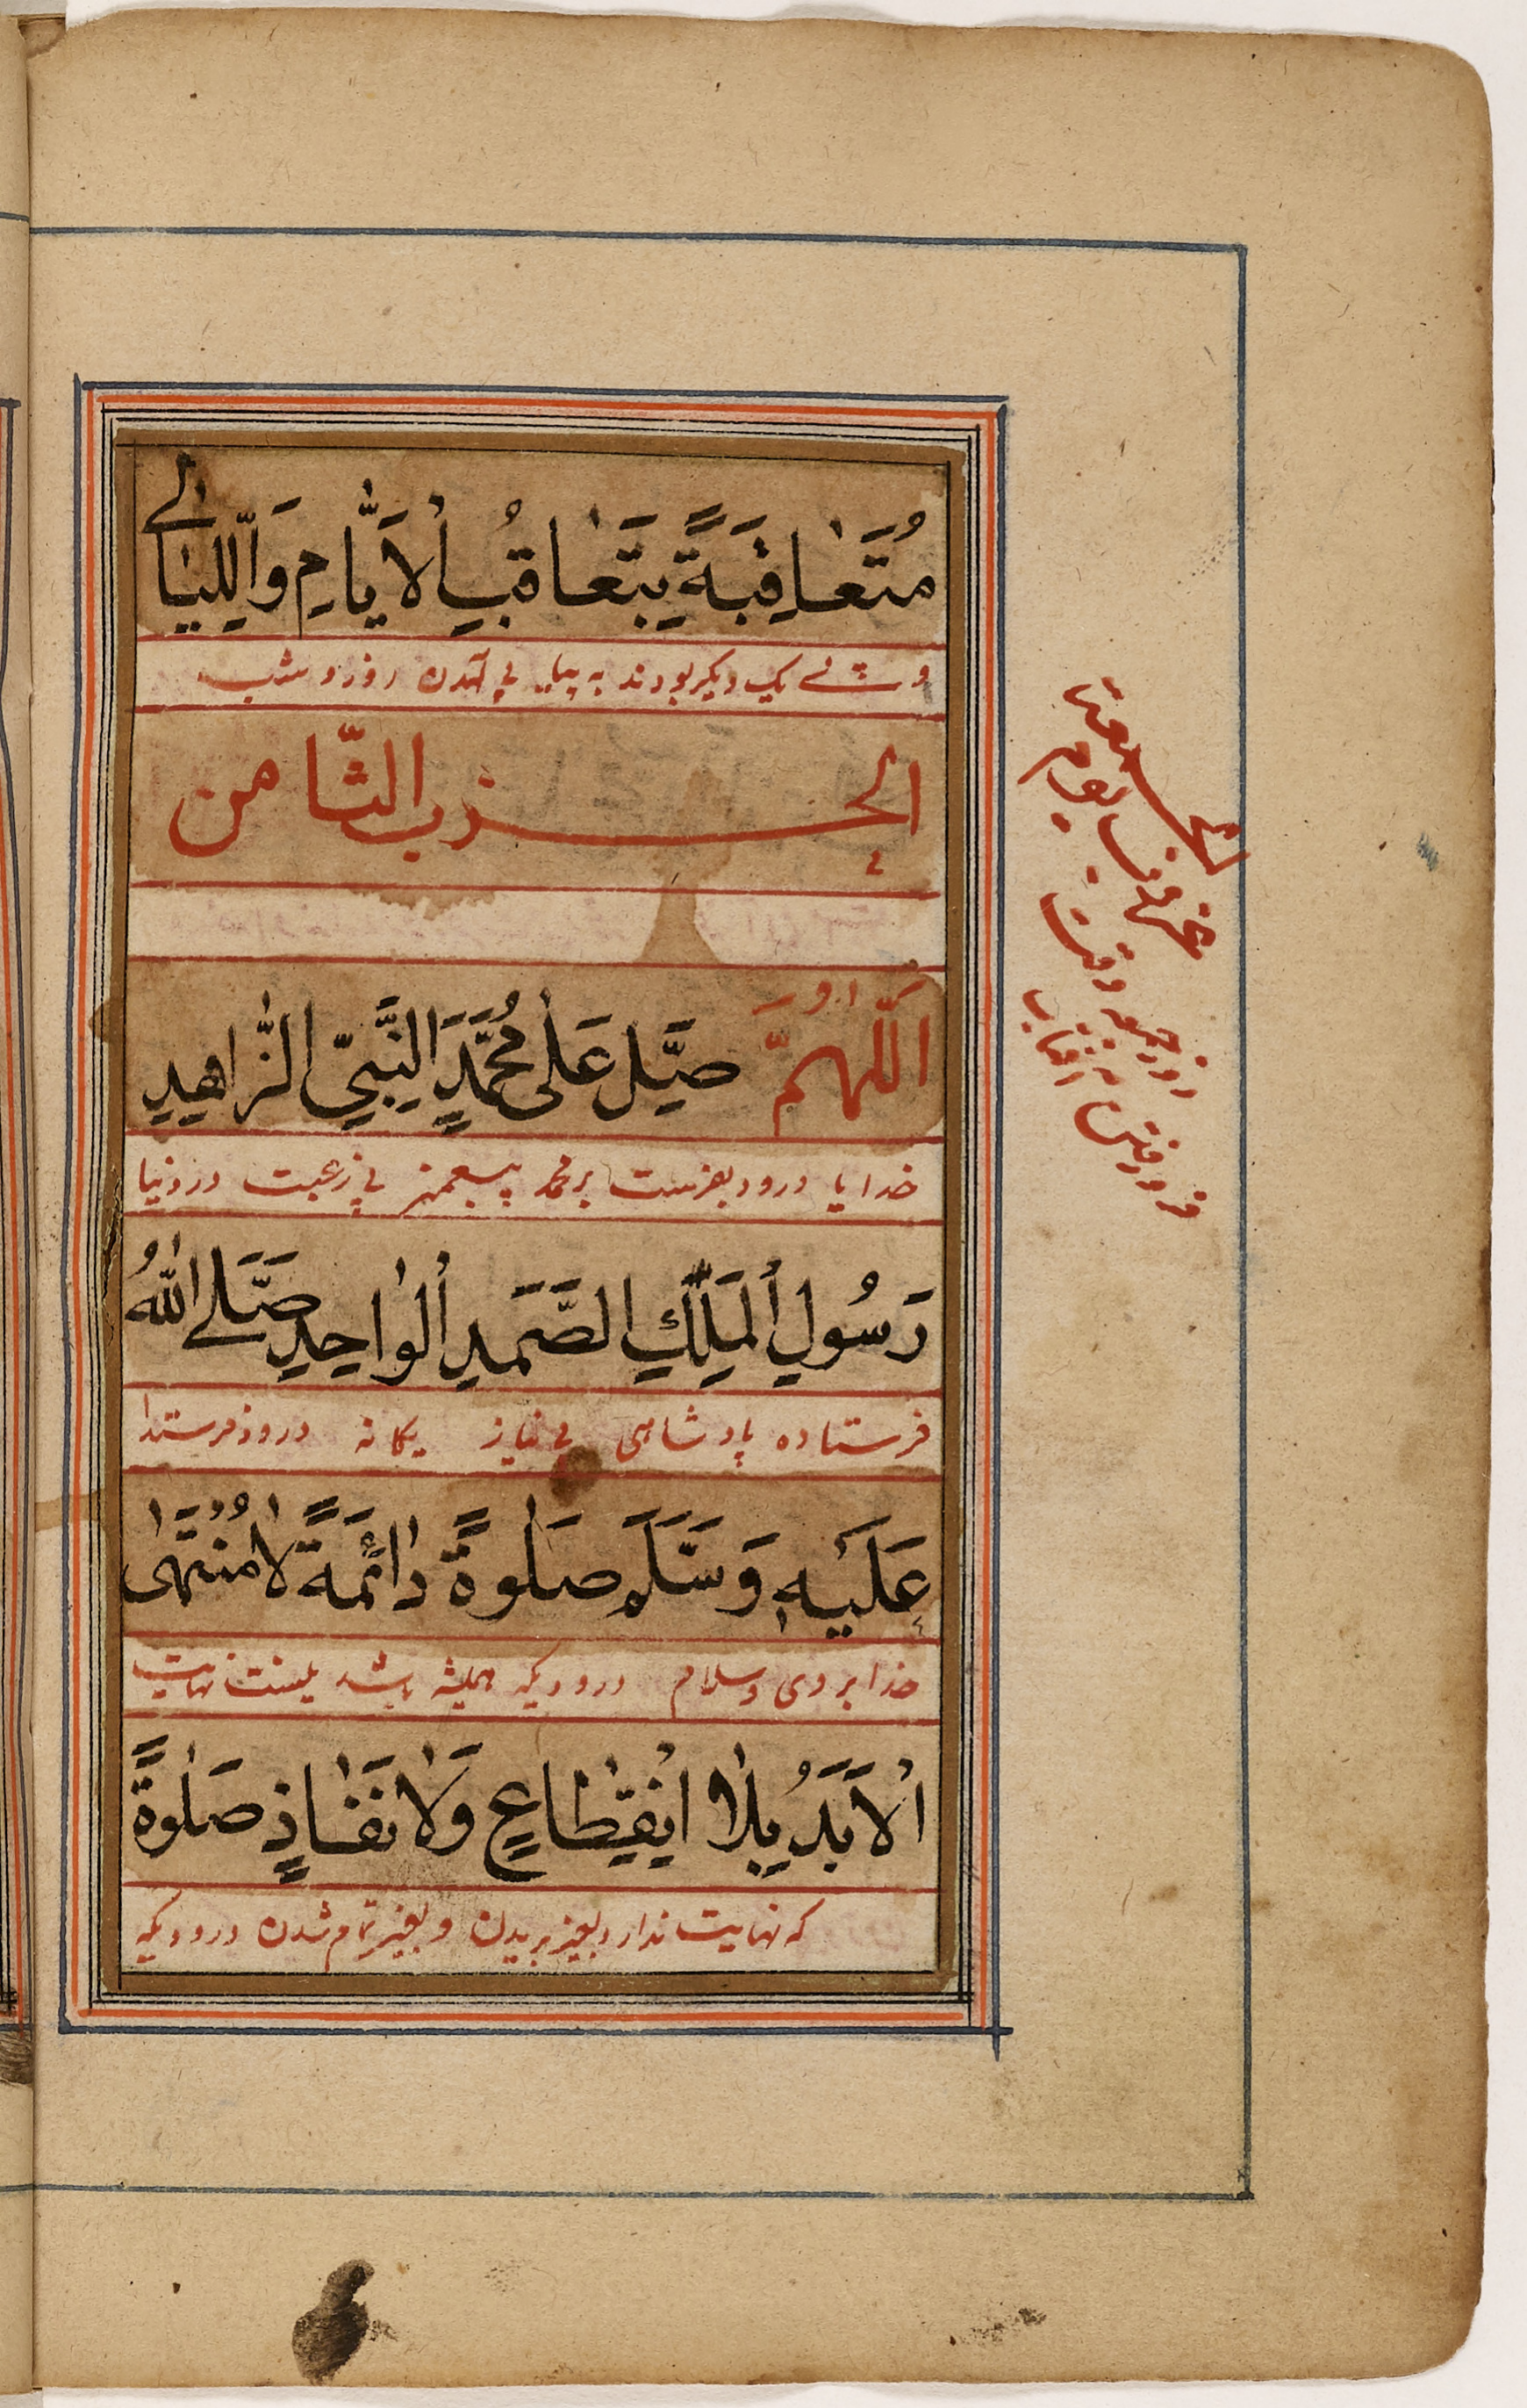 مُتَعَاقِبَةً بِتَعَاقُبِ الْاَيَّامِ وَاللَّيَالِي
یک دیگر بودند به پیاپی آمدن روز و شب
الحزب الثامن
اَللّٰهُمَّ صَلِّ عَلٰى مُحَمَّدٍ النَّبِيِّ الزَّاهِدِ
خدایا درود بفرست بر محمد پیغمبر بی رغبت در دنیا
رَسُولِ الْمَلِكِ الصَّمَدِ الْوَاحِدِ صَلَّى اللّٰهُ
فرستاده پادشاهی بی نیاز یکانه درود فرستد
عَلَيْهِ وَسَلَّمَ صَلٰوةً دَائِمَةً لَا مُنْتَهٰى
خدا بر وی و سلام درودیکه همیشه باشد نهایت
الْاَبَدِ بِلَا انْقِطَاعٍ وَلَا نَفَاذٍ صَلٰوةً
که نهایت ندارد بغیر بریدن و بغیر تمام شدن درودیکه
روز جمعه وقت
فرو رفتن آفتاب